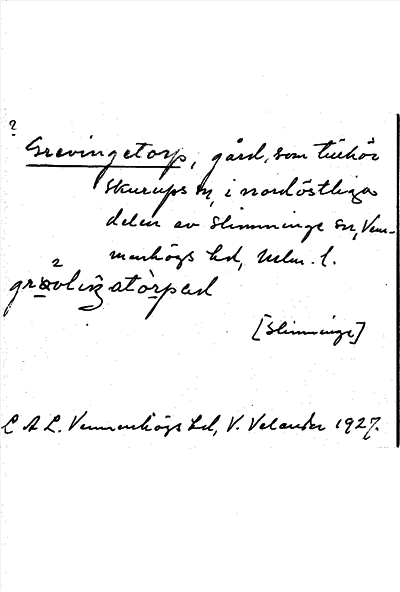 ?
Grevingetorp, gård, som tillhör
Skurups sn, i nordöstliga
delen av Slimminge sn, Vem-
menhögs hd, Mlm. l.
[Slimminge]
C A L. Vemmenhögs hd, V. Velander 1927.